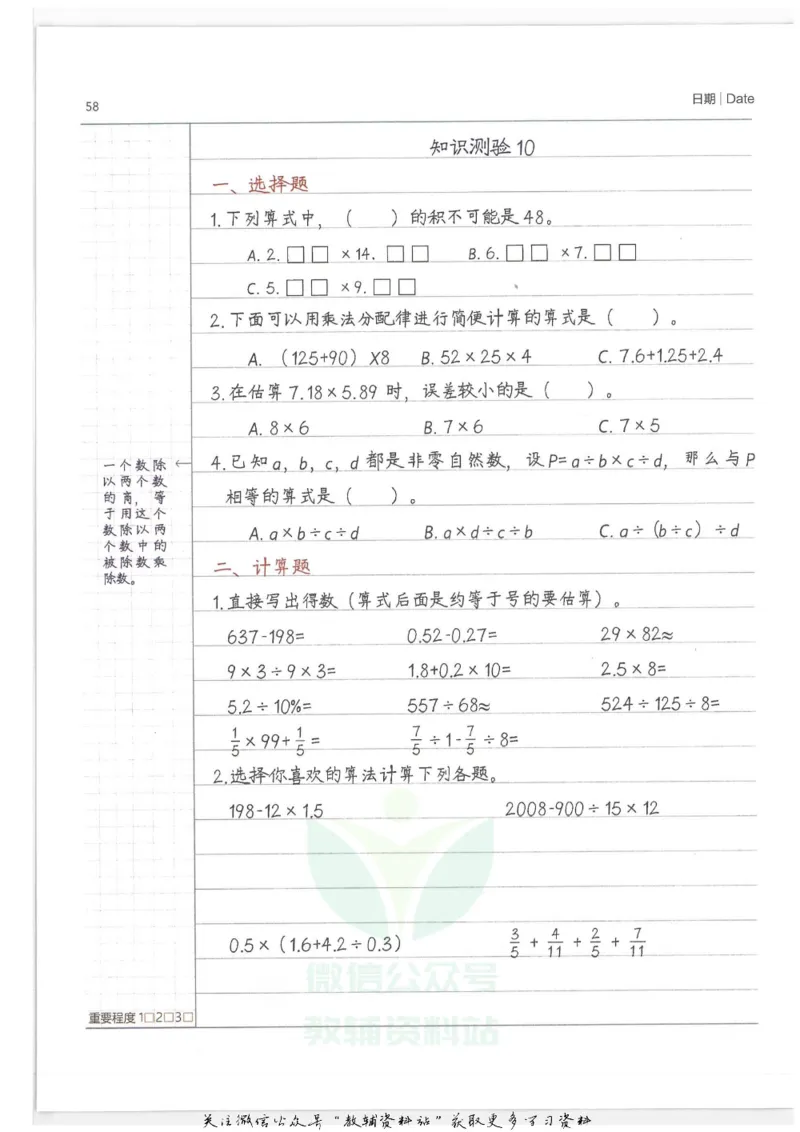 58
日期 | Date
知识测验10
一、选择题
1.下列算式中，（　）的积不可能是48。
A. 2.□□×14.□□　B. 6.□□×7.□□
C. 5.□□×9.□□
2.下面可以用乘法分配律进行简便计算的算式是（　）。
A.（125+90）×8　B. 52×25×4　C. 7.6+1.25+2.4
3.在估算7.18×5.89时，误差较小的是（　）。
A. 8×6　B. 7×6　C. 7×5
4.已知a，b，c，d都是非零自然数，设P=a÷b×c÷d，那么与P
相等的算式是（　）。
A. a×b÷c÷d　B. a×d÷c÷b　C. a÷（b÷c）÷d
一个数除←
以两个数
的商，等
于用这个
数除以两
个数中的
被除数乘
除数。
二、计算题
1.直接写出得数（算式后面是约等于号的要估算）。
637-198=　0.52-0.27=　29×82≈
9×3÷9×3=　1.8+0.2×10=　2.5×8=
5.2÷10%=　557÷68≈　524÷125÷8=
1/5×99+1/5=　7/5÷1-7/5÷8=
2.选择你喜欢的算法计算下列各题。
198-12×1.5　2008-900÷15×12
0.5×（1.6+4.2÷0.3）　3/5+4/11+2/5+7/11
微信公众号
教辅资料站
重要程度 1□2□3□
关注微信公众号"教辅资料站"获取更多学习资料